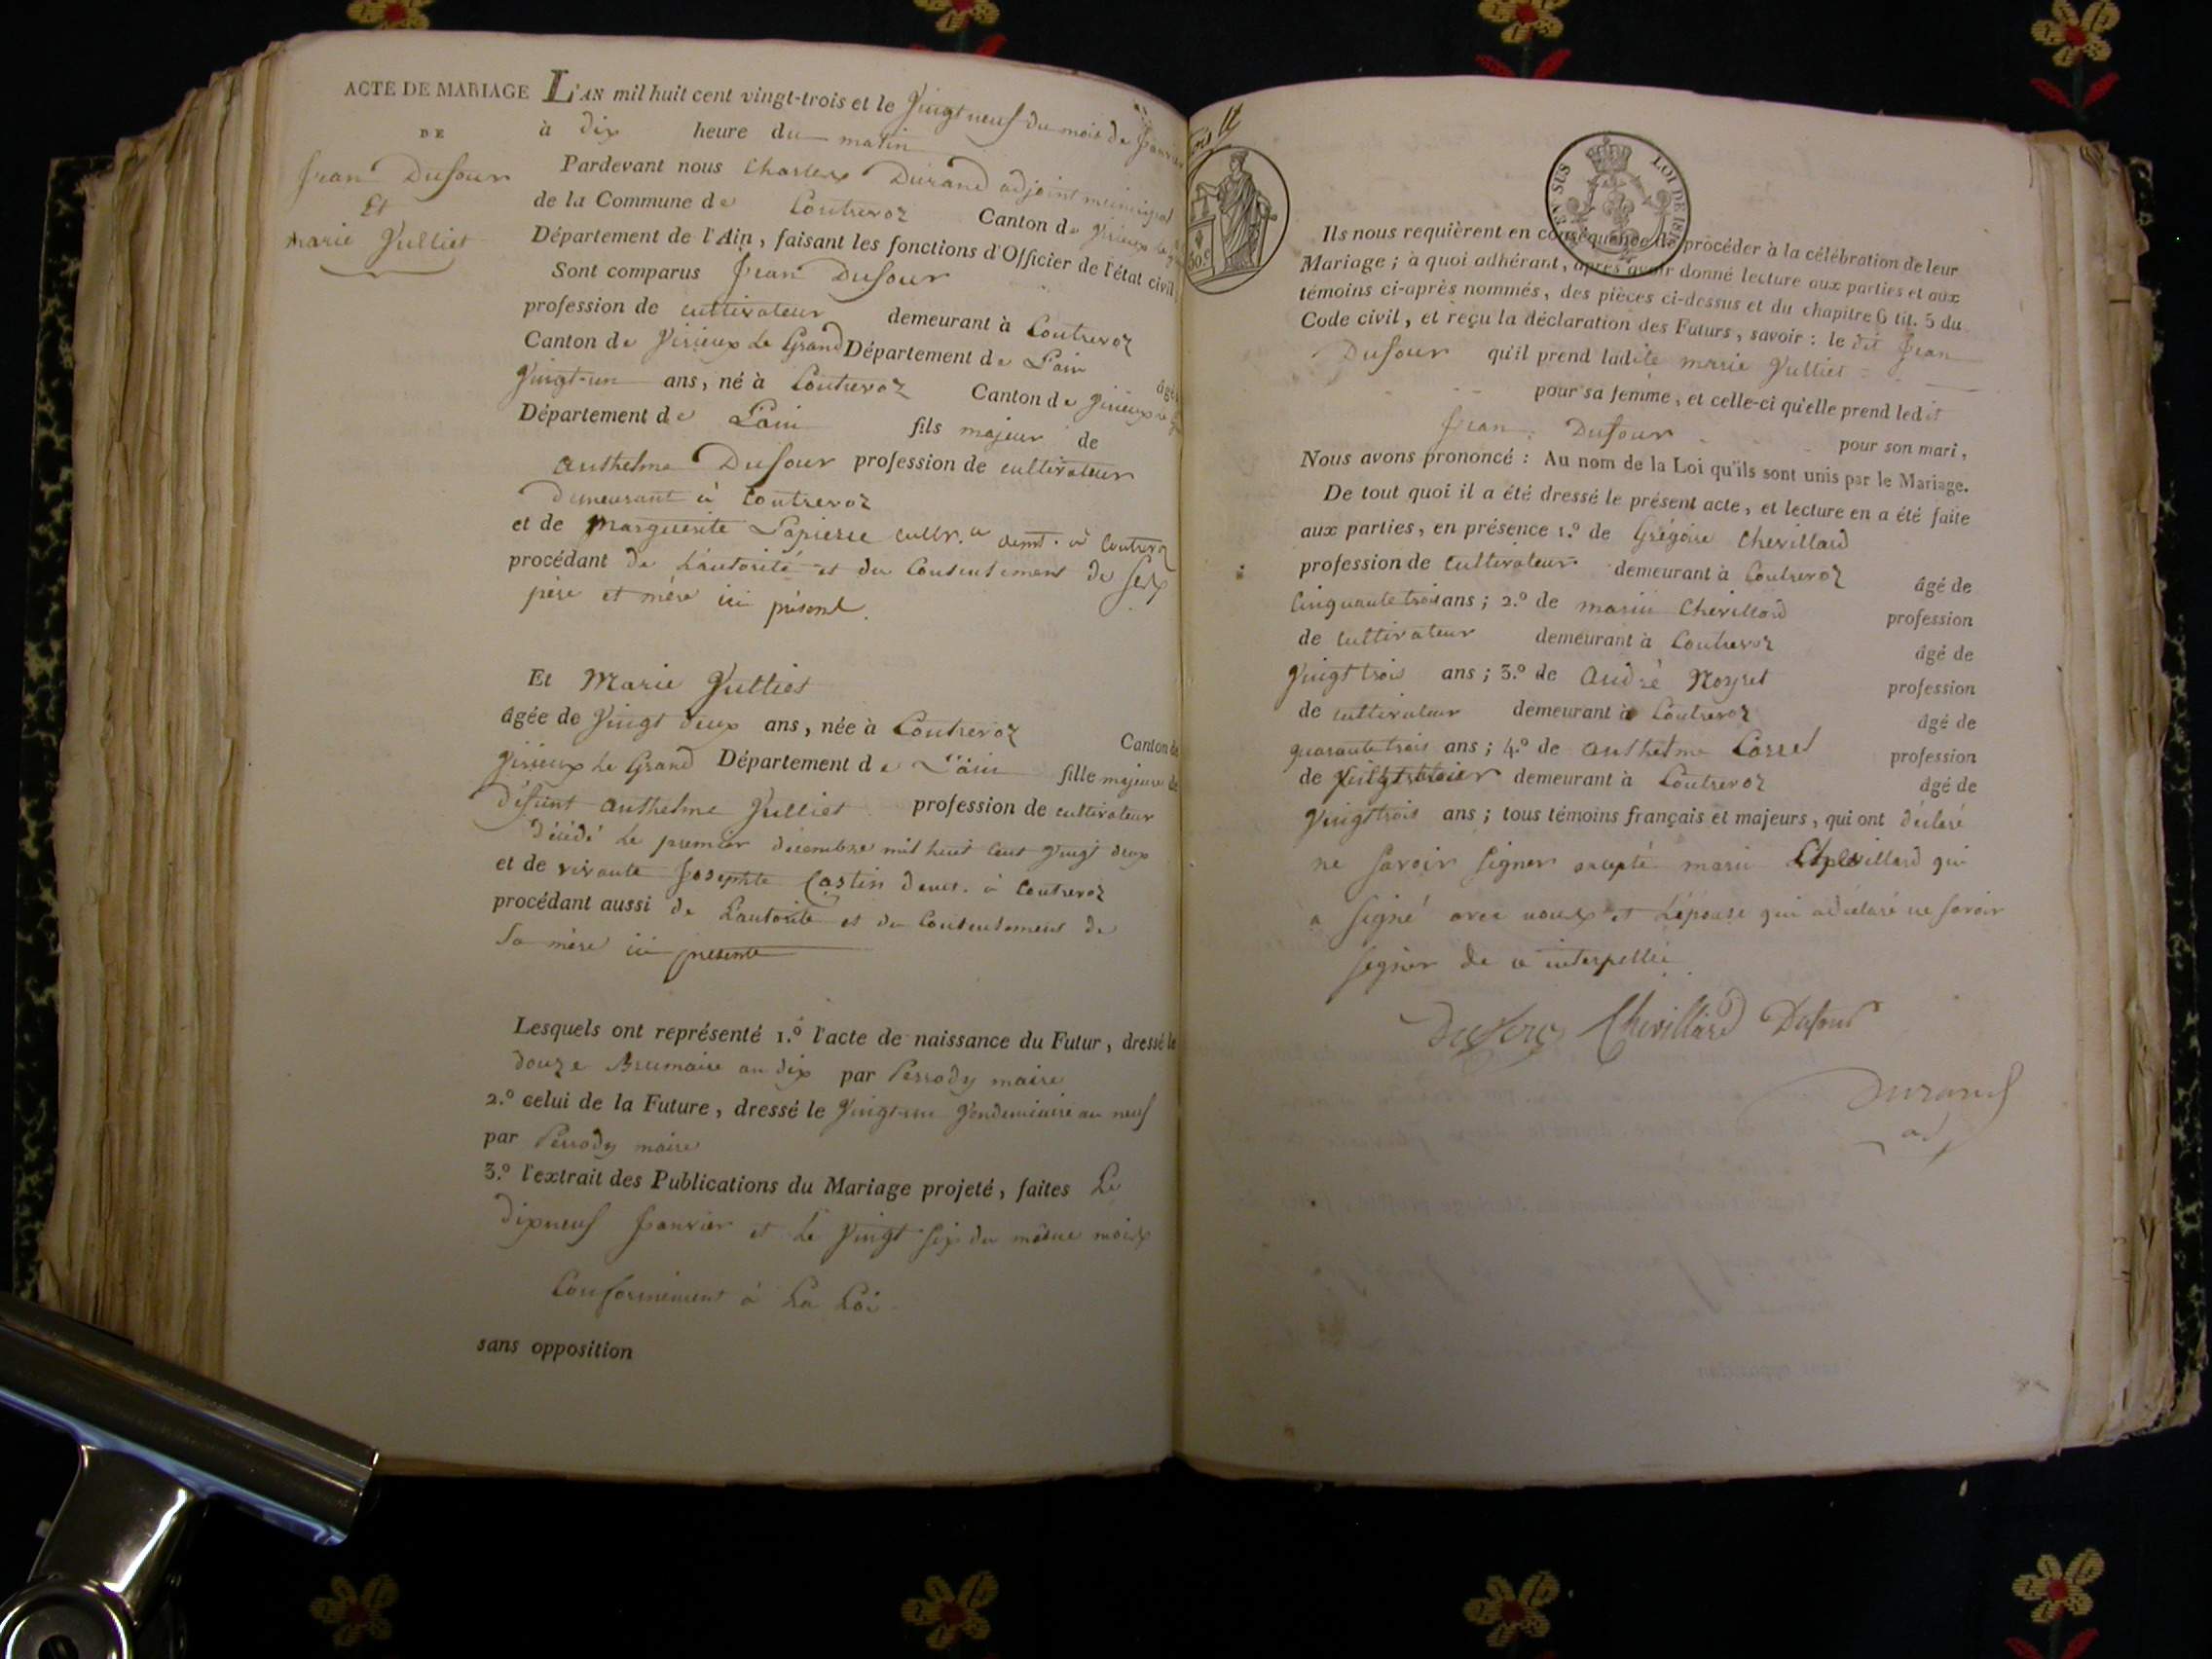 ACTE DE MARIAGE
DE
Jean Dufour
Et
marie Julliet
L'AN mil huit cent vingt-trois et le Vingt neuf du mois de Janvier
à dix heure du matin
Pardevant nous Charles Durand adjoint municipal
de la Commune de Contrevoz Canton de Virieux le
Département de l'Ain, faisant les fonctions d'Officier de l'état civil,
Sont comparus Jean Dufour
profession de cultivateur demeurant à Contrevoz
Canton de Virieux Le Grand Département de L'ain âgé
Vingt-un ans, né à Contrevoz Canton de Virieux le
Département de L'ain fils majeur de
Anthelme Dufour profession de cultivateur
demeurant à Contrevoz
et de Marguerite Lapierre cultr. demt. à Contrevoz
procédant de L'autorité et du Consentement de Ses
père et mère ici présent.
Et Marie Julliet
âgée de Vingt deux ans, née à Contrevoz Canton de
Virieux Le Grand Département de L'ain fille majeure de
défunt Anthelme Julliet profession de cultivateur
décédé Le premier décembre mil huit Cent Vingt deux
et de vivante Josephte Castin demt. à Contrevoz
procédant aussi de L'autorité et du Consentement de
Sa mère ici présente
Lesquels ont représenté 1.º l'acte de naissance du Futur, dressé le
douze Brumaire an dix par Perrody maire
2.º celui de la Future, dressé le Vingt-un Vendemiaire an neuf
par Perrody maire
3.º l'extrait des Publications du Mariage projeté, faites Le
dixneuf Janvier et Le Vingt Six du même mois
Conformément à La Loi
sans opposition
50.c
LOI DE 1816
Ils nous requièrent en conséquence de procéder à la célébration de leur
Mariage; à quoi adhérant, après avoir donné lecture aux parties et aux
témoins ci-après nommés, des pièces ci-dessus et du chapitre 6 tit. 5 du
Code civil, et reçu la déclaration des Futurs, savoir: le dit Jean
Dufour qu'il prend ladite marie Julliet
pour sa femme, et celle-ci qu'elle prend ledit
Jean Dufour pour son mari,
Nous avons prononcé: Au nom de la Loi qu'ils sont unis par le Mariage.
De tout quoi il a été dressé le présent acte, et lecture en a été faite
aux parties, en présence 1.º de Grégoire Chevillard
profession de Cultivateur demeurant à Contrevoz âgé de
Cinquante trois ans; 2.º de marin Chevillard profession
de Cultivateur demeurant à Contrevoz âgé de
Vingt trois ans; 3.º de André Noyret profession
de cultivateur demeurant à Contrevoz âgé de
quarante trois ans; 4.º de Anthelme profession
de demeurant à Contrevoz âgé de
Vingt trois ans; tous témoins français et majeurs, qui ont déclaré
ne Savoir Signer excepté marin Chevillard qui
a Signé avec nous et L'épouse qui a déclaré ne Savoir
Signer de ce interpellée
Chevillard Dufour
Durand
adj